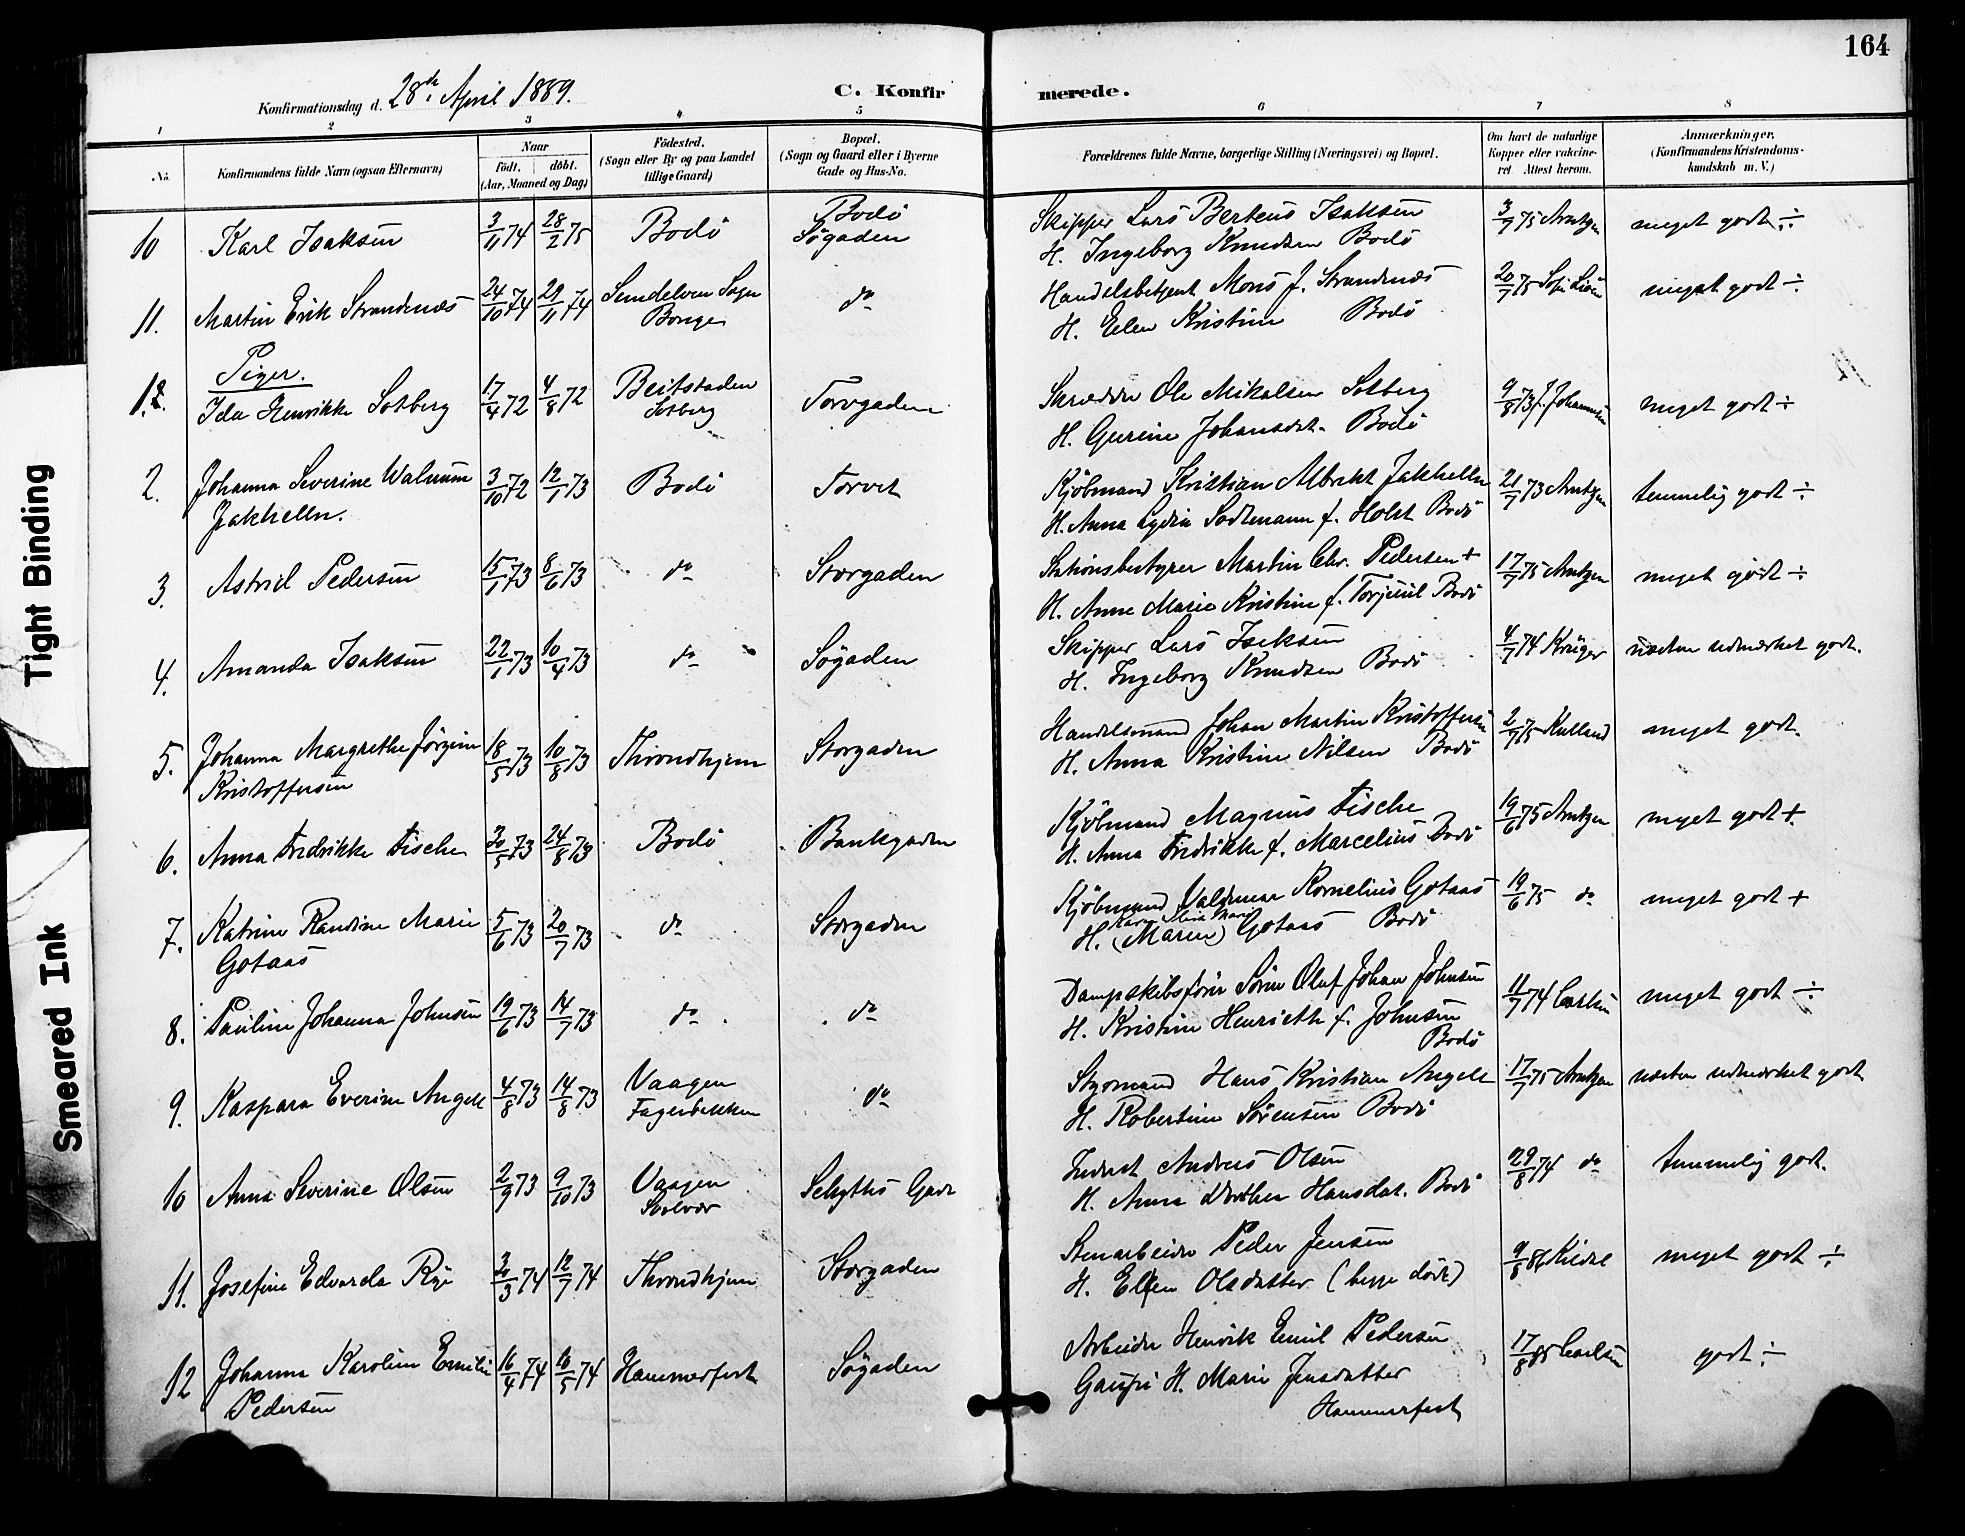 164
Konfirmationsdag d. 28de April 1889.
C. Konfirmerede.
1 2 3 4 5 6 7 8
No.
Konfirmandens fulde Navn (ogsaa Efternavn)
Naar
födt. döbt.
(Aar, Maaned og Dag)
Födested.
(Sogn eller By og paa Landet
tillige Gaard)
Bopæl.
(Sogn og Gaard eller i Byerne
Gade og Hus-No.
Forældrenes fulde Navne, borgerlige Stilling (Næringsvei) og Bopæl.
Om havt de naturlige
Kopper eller vakcine-
ret. Attest herom.
Anmærkninger.
(Konfirmandens Kristendoms-
kundskab m. V.)
10 Karl Isaksen 3/11 74 28/2 75 Bodö Bodö
Søgaden
Skipper Lars Berteus Isaksen
H. Ingeborg Knudsen Bodö
3/9 75 Arntzen meget godt ÷
11. Martin Erik Strandnæs 24/10 74 29/11 74 Sundelven Sogn
Borge
do
Handelsbetjent Mons J. Strandnæs
H. Elen Kristine Bodö
20/7 75 meget godt ÷
Piger.
1. Ida Henrikke Solberg 17/4 72 4/8 72 Beitstaden
Solberg
Torvgaden
Skrædder Ole Mikalsen Solberg
H. Gurine Johansdt. Bodö
9/8 73 J. Johannesen meget godt ÷
2. Johanna Severine Walnum
Jakhelln.
3/10 72 12/1 73 Bodö Torvet
Kjöbmand Kristian Albrekt Jakhelln
H. Anna Lydia Sodtmann f. Holst Bodö
21/7 73 Arntzen temmelig godt ÷
3. Astrid Pedersen 15/1 73 8/6 73 do Storgaden
Stationsbestyrer Martin Chr. Pedersen +
H. Anne Marie Kristine f. Torjuul Bodö
17/7 75 Arntzen meget godt ÷
4. Amanda Isaksen 22/1 73 10/4 73 do Søgaden
Skipper Lars Isaksen
H. Ingeborg Knudsen Bodö
4/7 74 Krüger næsten udmærket godt.
5. Johanna Margrethe Jörgine
Kristoffersen
18/5 73 10/8 73 Throndhjem Storgaden
Handelsmand Johan Martin Kristoffersen
H. Anna Kristine Nilsen Bodö
2/7 75 Kulland meget godt.
6. Anna Fredrikke Fische 30/5 73 24/8 73 Bodö Bankgaden
Kjöbmand Magnus Fische
H. Anna Fredrikke f. Marcelius Bodö
19/6 75 Arntzen meget godt +
7. Katrine Randine Marie
Gotaas
5/6 73 20/7 73 do Storgaden
Kjöbmand Valdemar Kornelius Gotaas
H. (Maren) Gotaas Bodö
19/6 75 do meget godt +
8. Pauline Johanna Johnsen 19/6 73 14/7 73 do do
Dampskibsförer Sören Oluf Johan Johnsen
H. Kristine Henriette f. Johnsen
Bodö
11/7 74 Carlsen meget godt ÷
9. Kaspara Everine Angell 4/8 73 14/8 73 Vaagen
Fagerbekken
do
Styrmand Hans Kristian Angell
H. Robertine Sörensen Bodö
17/7 75 Arntzen næsten udmærket godt
10 Anna Severine Olsen 2/9 73 9/10 73 Vaagen
Svolvær
Schyttes Gade
Inderst Andreas Olsen
H. Anna Dorthea Hansdat. Bodö
29/8 74 do temmelig godt.
11. Josefine Edvarda Rye 30/3 74 12/7 74 Throndhjem Storgaden
Stenarbeider Peder Jensen
H. Ellen Olsdatter (begge döde)
9/8 86 Kidal meget godt ÷
12 Johanna Karoline Emilie
Pedersen
16/4 74 10/5 74 Hammerfest Søgaden
Arbeider Henrik Emil Pedersen
H. Marie Jensdatter
Hammerfest
17/8 85 Carlsen godt ÷
Tight Binding
Smeared Ink